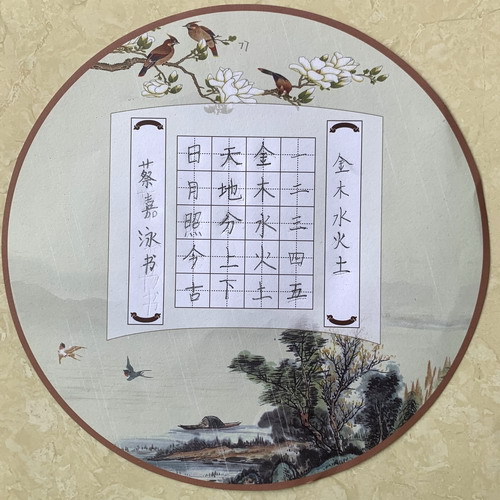 金木水火土
一二三四五
金木水火土
天地分上下
日月照今古
蔡嘉泳书